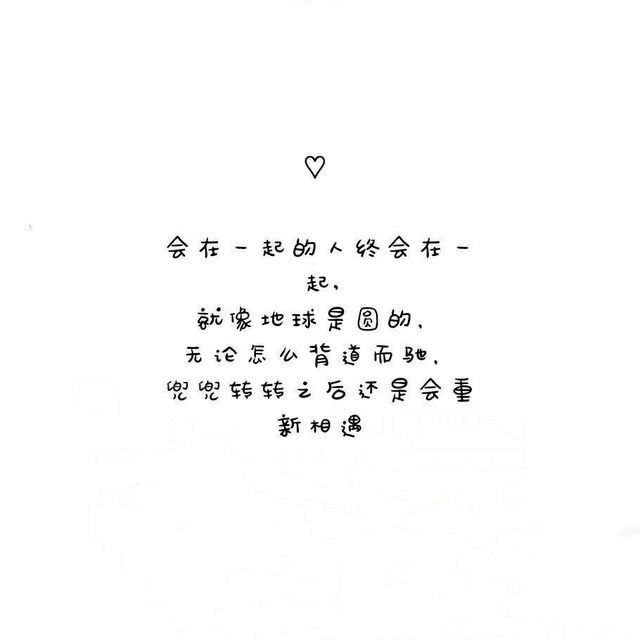 会在一起的人终会在一
起,
就像地球是圆的,
无论怎么背道而驰,
兜兜转转之后还是会重
新相遇